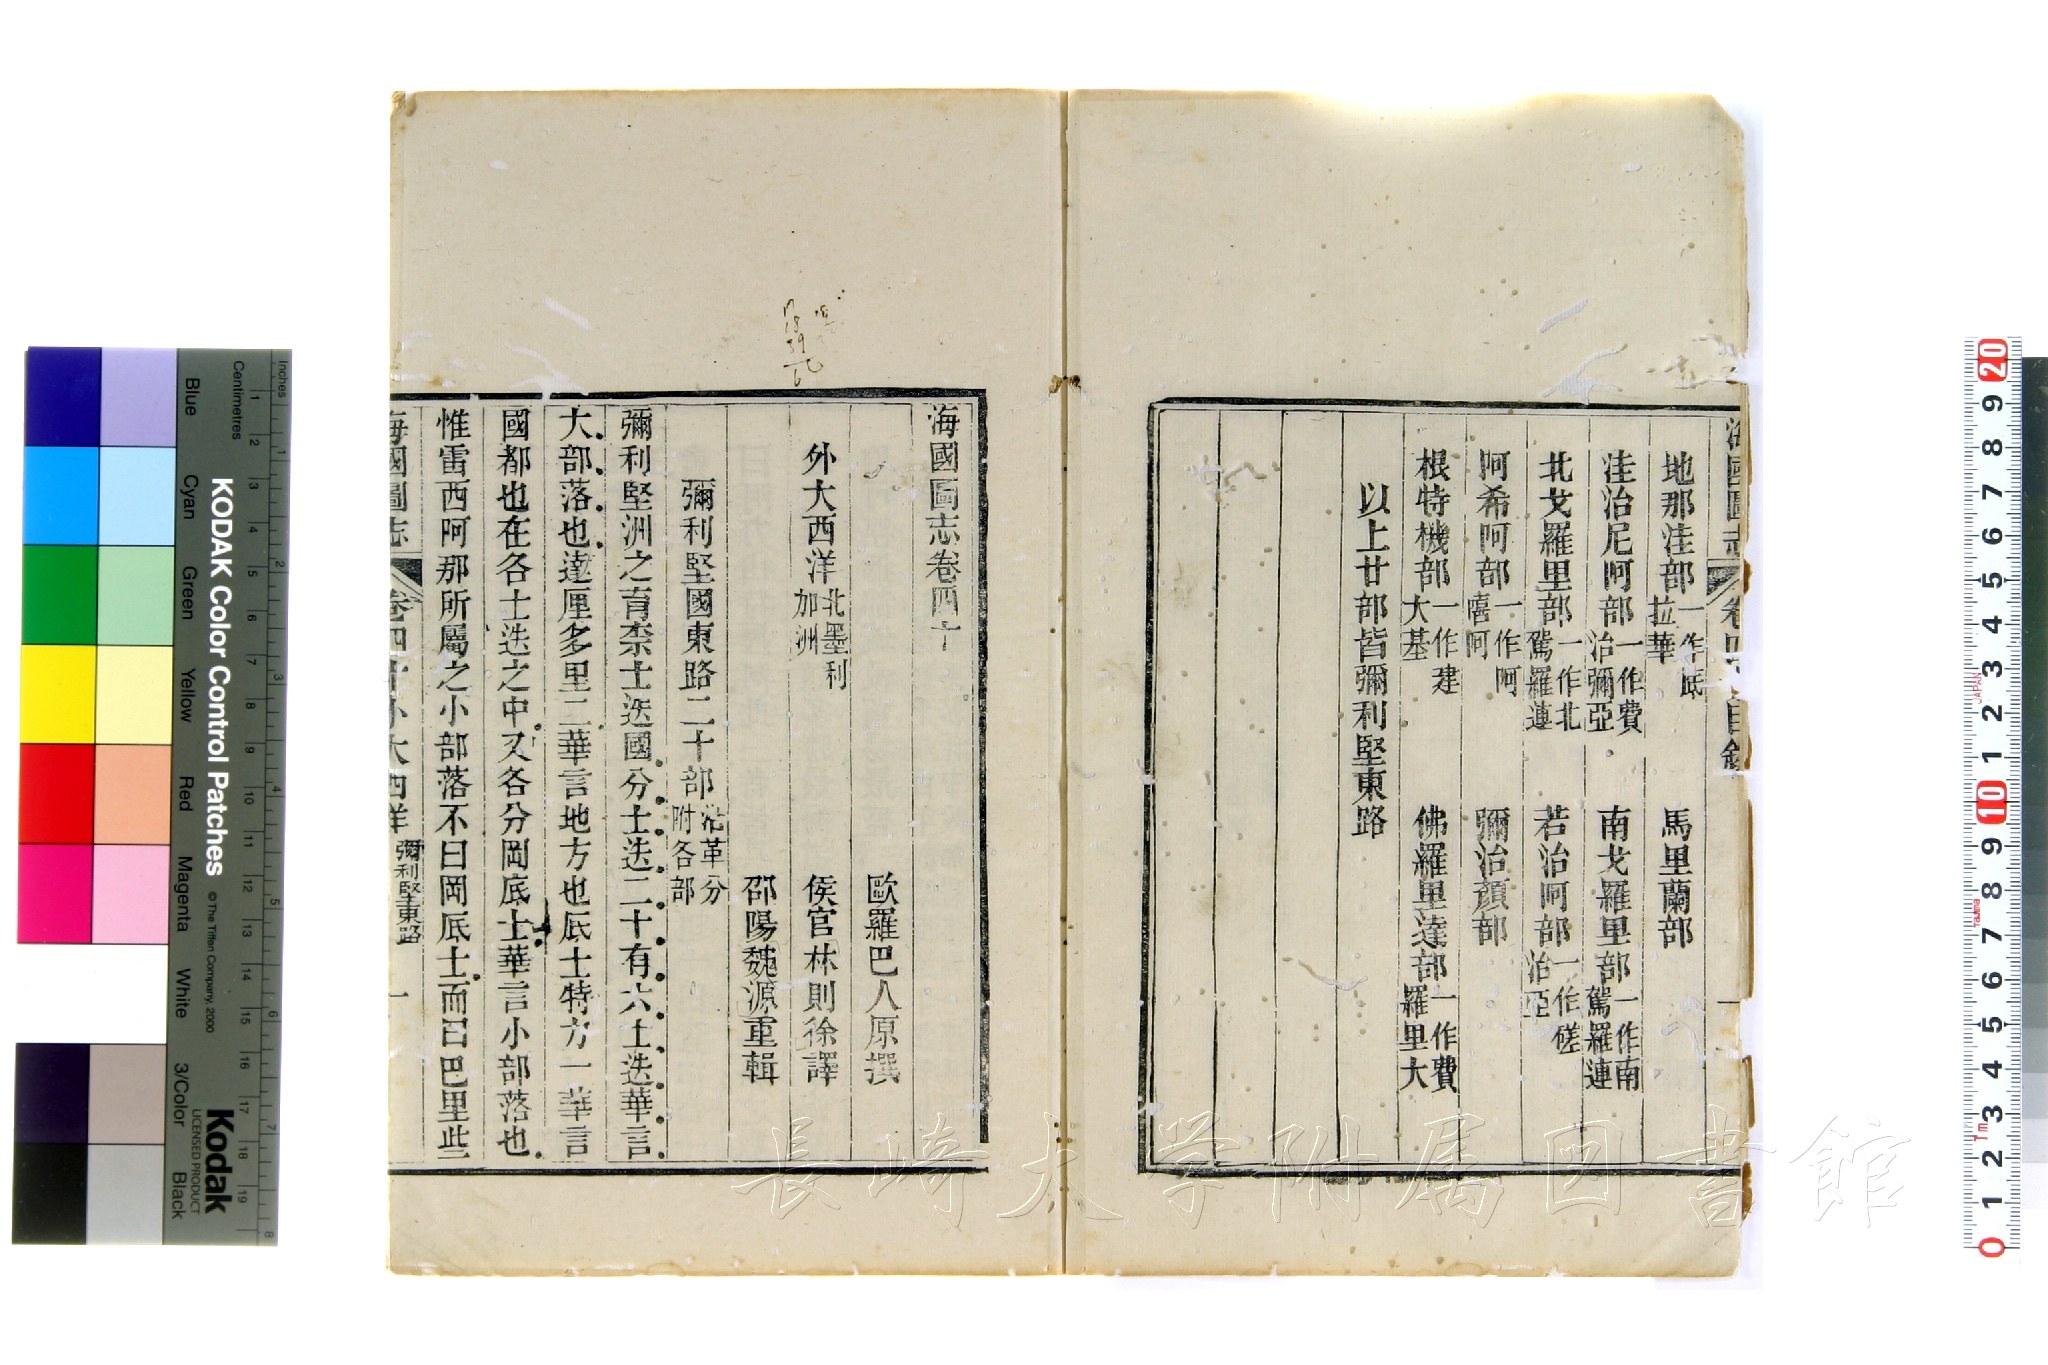 海國圖志 卷四十目錄 一
地那洼部一作底拉華 馬里蘭部
洼治尼阿部一作費治彌亞 南戈羅里部一作南駕羅連
北戈羅里部一作北駕羅連 若治阿部一作磋治亞
阿希阿部一作阿嘻阿 彌治顏部
根特機部一作建大基 佛羅里達部一作費羅里大
以上廿部皆彌利堅東路
海國圖志卷四十
歐羅巴人原撰
外大西洋北墨利加洲 侯官林則徐譯
邵陽魏源重輯
彌利堅國東路二十部沿革分附各部
彌利堅洲之育奈士迭國分士迭二十有六士迭華言
大部落也達厘多里二華言地方也底士特力一華言
國都也在各士迭之中又各分岡底士華言小部落也
惟雷西阿那所屬之小部落不曰岡底士而曰巴里些
海國圖志 卷四十外大西洋 彌利堅東路 一
17
18
39
6
KODAK Color Control Patches
© The Tiffen Company, 2000
Kodak
LICENSED PRODUCT
Inches
Centimetres
Blue
Cyan
Green
Yellow
Red
Magenta
White
3/Color
Black
1 2 3 4 5 6 7 8
1 2 3 4 5 6 7 8 9 10 11 12 13 14 15 16 17 18 19
20 9 8 7 6 5 4 3 2 1 10 9 8 7 6 5 4 3 2 1 0
JAPAN
長崎大学附属図書館